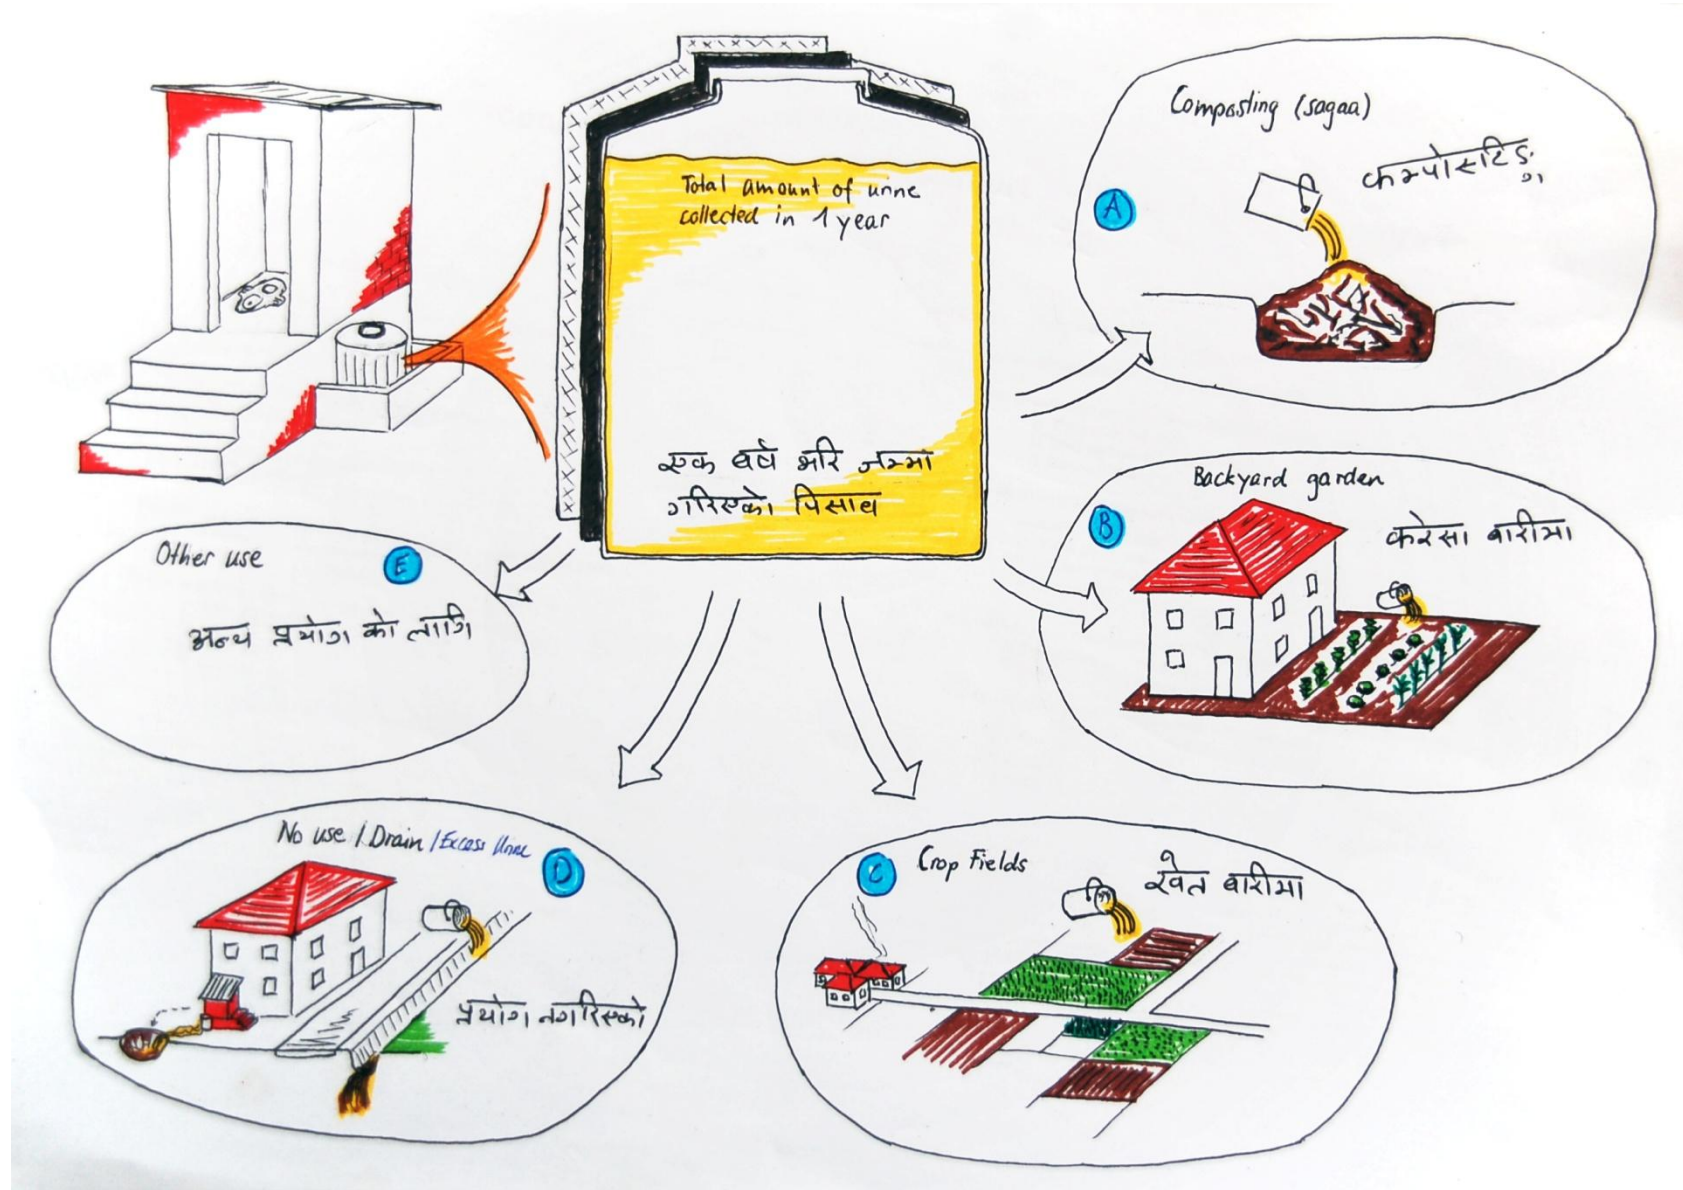 Total amount of urine
collected in 1 year
एक वर्ष भरि जम्मा
गरिएको पिसाब
Composting (sagaa)
कम्पोस्टिङ्ग
A
Backyard garden
B
करेसा बारीमा
C
Crop Fields
खेत बारीमा
No use / Drain / Excess Urine
D
प्रयोग नगरिएको
Other use
E
अन्य प्रयोग को लागि